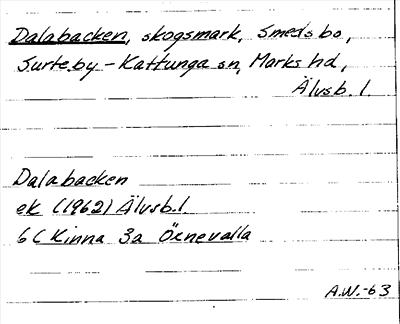 Dalabacken, skogsmark, Smedsbo,
Surteby-Kattunga sn, Marks hd,
Älvsb. l.
Dalabacken
ek (1962) Älvsb.l.
6C Kinna 3a Örnevalla
A.W.-63